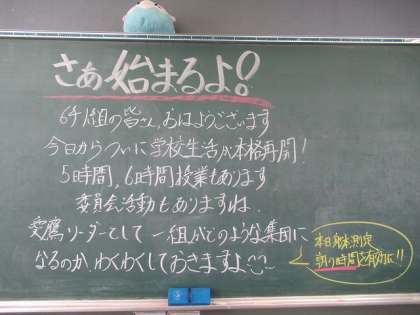 さぁ始まるよ!!
6年1組の皆さん、おはようございます
今日からついに学校生活が本格再開!
5時間、6時間授業もあります
委員会活動もありますね。
愛鷹リーダーとして 一組がどのような集団に
なるのか、わくわくしておきますよ
本日身体測定
割り時間を有効に!!